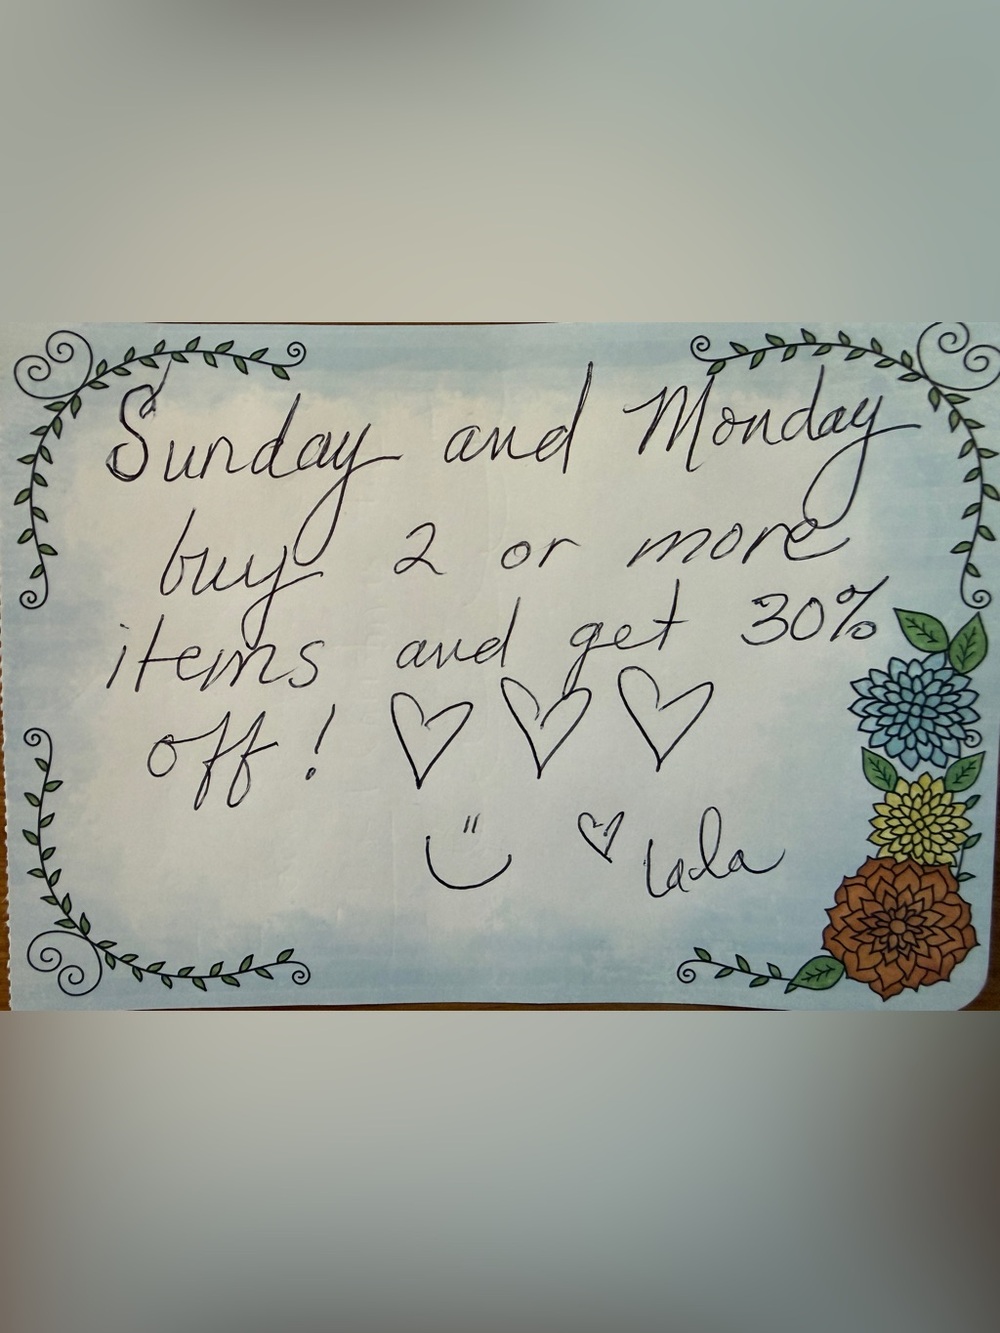 Sunday and Monday
buy 2 or more
items and get 30%
off! ♡ ♡ ♡
♡ Lala